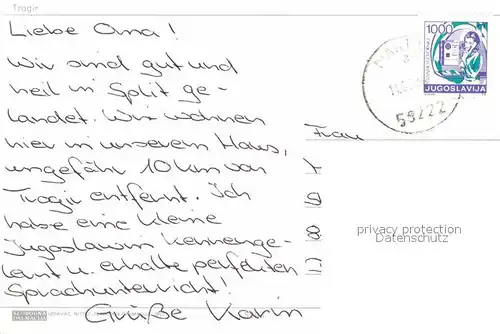 Trogir
Liebe Oma!
Wir sind gut und
heil in Split ge-
landet. Wir wohnen
hier in unserem Haus,
ungefähr 10 km von
Trogir entfernt. Ich
habe eine kleine
Jugoslawin kennenge-
lernt u. erhalte perfekten
Sprachunterricht!
Grüße Karin
Frau
1000
JUGOSLAVIJA
58222
privacy protection
Datenschutz
SLOBODNA
DALMACIJA